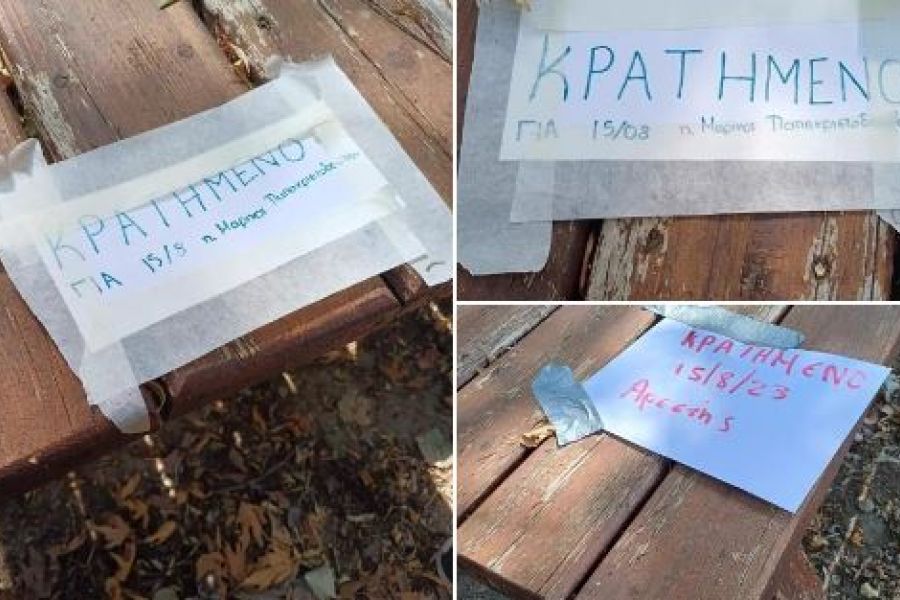 ΚΡΑΤΗΜΕΝΟ
ΓΙΑ 15/8 π. Μαριος Παπαχριστοδ
ΚΡΑΤΗΜΕΝΟ
ΓΙΑ 15/08 π. Μαριος Παπαχριστοδ
ΚΡΑΤΗΜΕΝΟ
15/8/23
Αρεστής